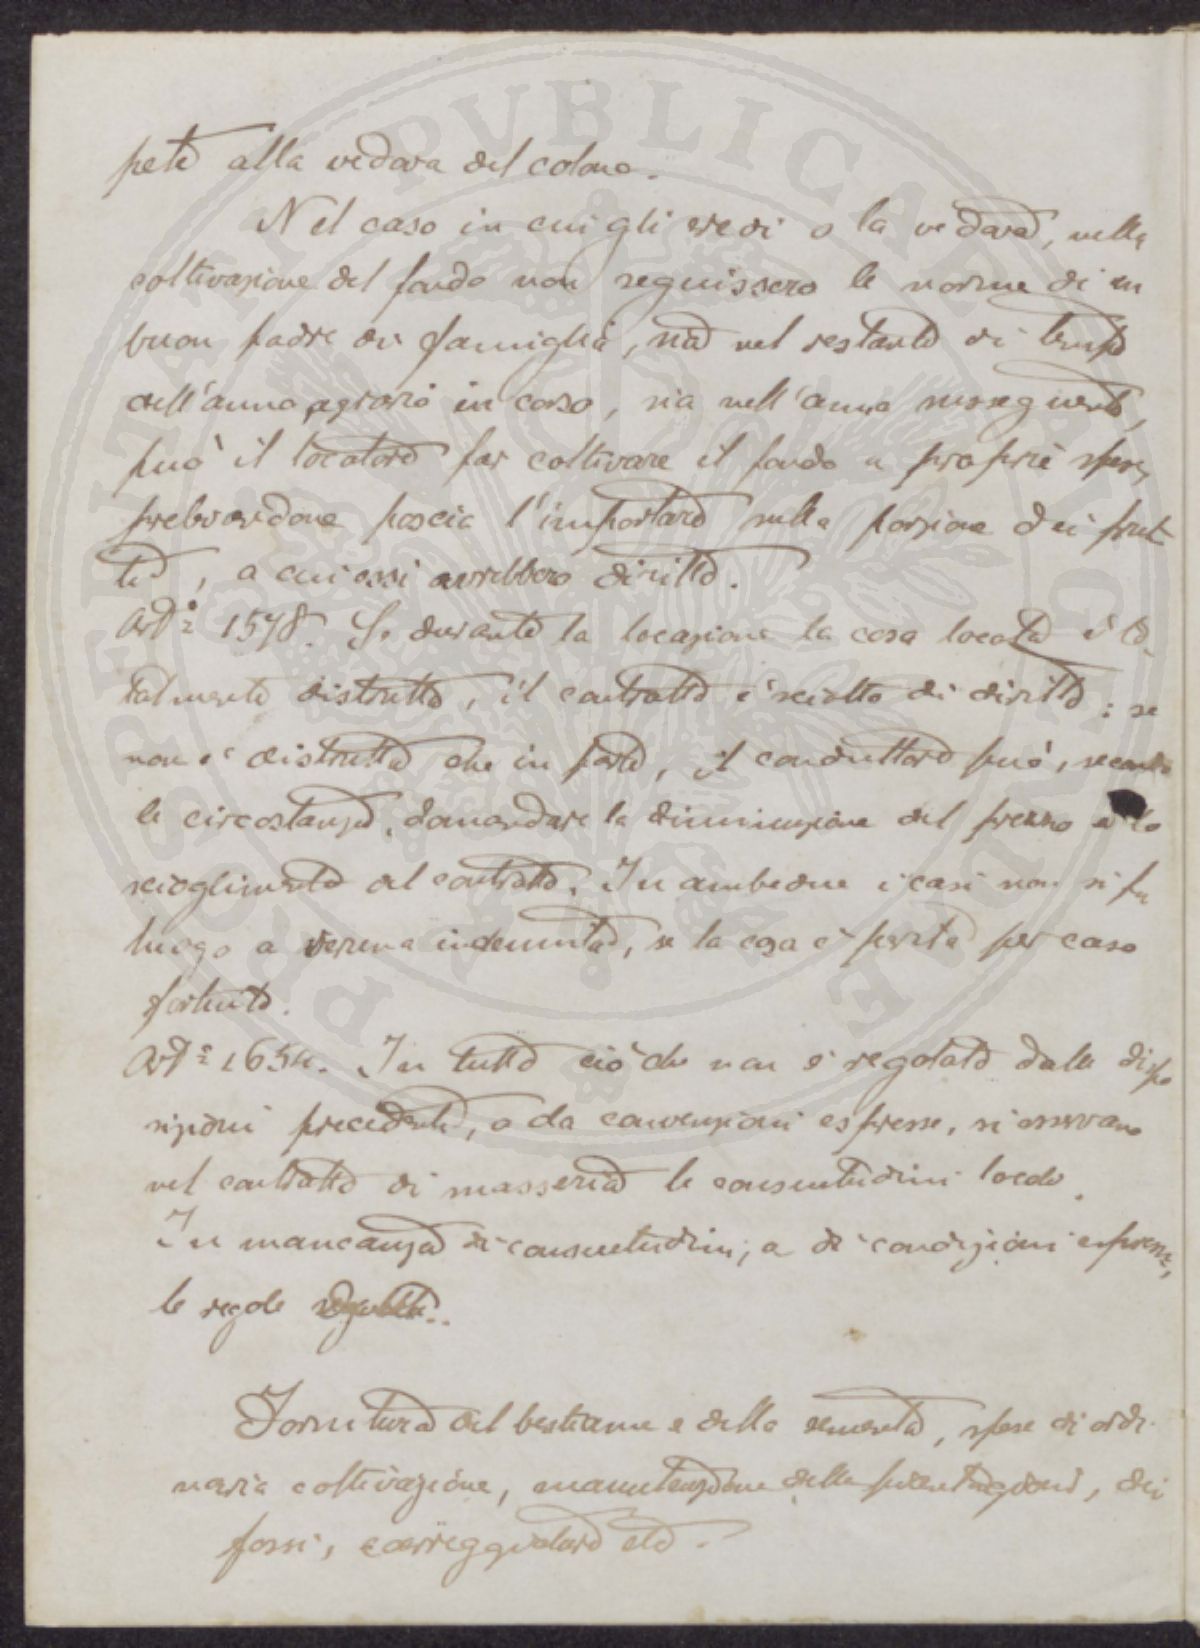 pete alla vedova del colono.
Nel caso in cui gli eredi o la vedova, nella
coltivazione del fondo non seguissero le norme di un
buon padre di famiglia, sia nel restante di tempo
dell'anno agrario in corso, sia nell'anno susseguente,
può il locatore far coltivare il fondo a proprie spese,
prelevandone poscia l'importare sulla porzione dei frut
ti, a cui essi avrebbero diritto.
Art.º 1578. Se durante la locazione la cosa locata è to
talmente distrutta, il contratto è sciolto di diritto: se
non è distrutta che in parte, il conduttore può, secondo
le circostanze, domandare la diminuzione del prezzo o lo
scioglimento del contratto. In ambedue i casi non si fa
luogo a veruna indennità, se la cosa è perita per caso
fortuito.
Art.º 1654. In tutto ciò che non è regolato dalle dispo
sizioni precedenti, o da convenzioni espresse, si osservano
nel contratto di masseria le consuetudini locali.
In mancanza di consuetudini, o di condizioni espresse,
le regole seguenti..
Fornitura del bestiame e della sementa, spese di ordi
naria coltivazione, manutenzione delle piantagioni, dei
fossi, carreggiature etc.
PROSPERITATI PVBLICAE AVGENDAE